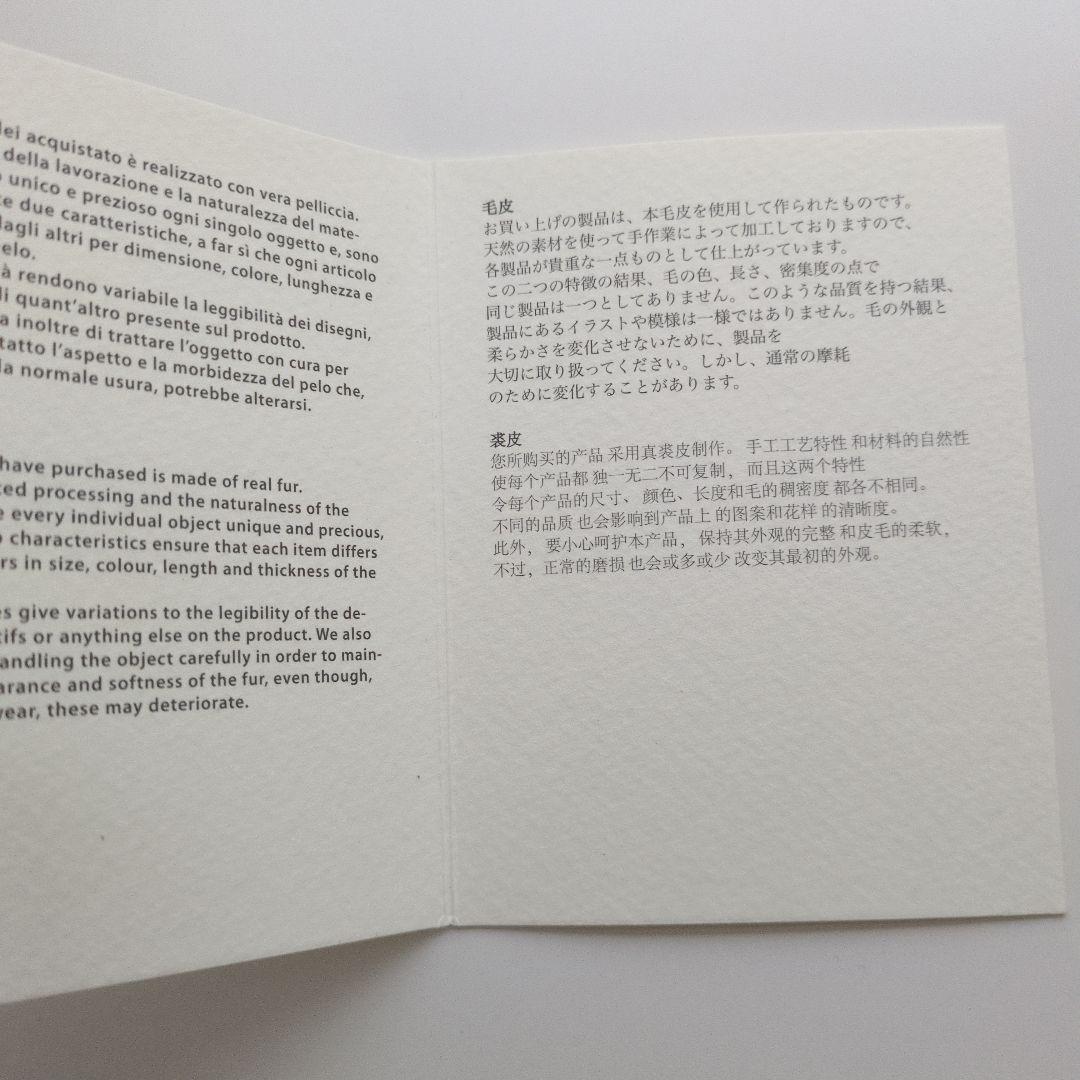 acquistato è realizzato con vera pelliccia.
della lavorazione e la naturalezza del mate-
unico e prezioso ogni singolo oggetto e, sono
due caratteristiche, a far sì che ogni articolo
dagli altri per dimensione, colore, lunghezza e
elo.
à rendono variabile la leggibilità dei disegni,
di quant'altro presente sul prodotto.
a inoltre di trattare l'oggetto con cura per
tatto l'aspetto e la morbidezza del pelo che,
la normale usura, potrebbe alterarsi.
have purchased is made of real fur.
ed processing and the naturalness of the
e every individual object unique and precious,
characteristics ensure that each item differs
rs in size, colour, length and thickness of the
es give variations to the legibility of the de-
tifs or anything else on the product. We also
andling the object carefully in order to main-
arance and softness of the fur, even though,
wear, these may deteriorate.
毛皮
お買い上げの製品は、本毛皮を使用して作られたものです。
天然の素材を使って手作業によって加工しておりますので、
各製品が貴重な一点ものとして仕上がっています。
この二つの特徴の結果、毛の色、長さ、密集度の点で
同じ製品は一つとしてありません。このような品質を持つ結果、
製品にあるイラストや模様は一様ではありません。毛の外観と
柔らかさを変化させないために、製品を
大切に取り扱ってください。しかし、通常の摩耗
のために変化することがあります。
裘皮
您所购买的产品 采用真裘皮制作。 手工工艺特性 和材料的自然性
使每个产品都 独一无二不可复制， 而且这两个特性
令每个产品的尺寸、 颜色、长度和毛的稠密度 都各不相同。
不同的品质 也会影响到产品上 的图案和花样 的清晰度。
此外， 要小心呵护本产品， 保持其外观的完整 和皮毛的柔软，
不过，正常的磨损 也会或多或少 改变其最初的外观。